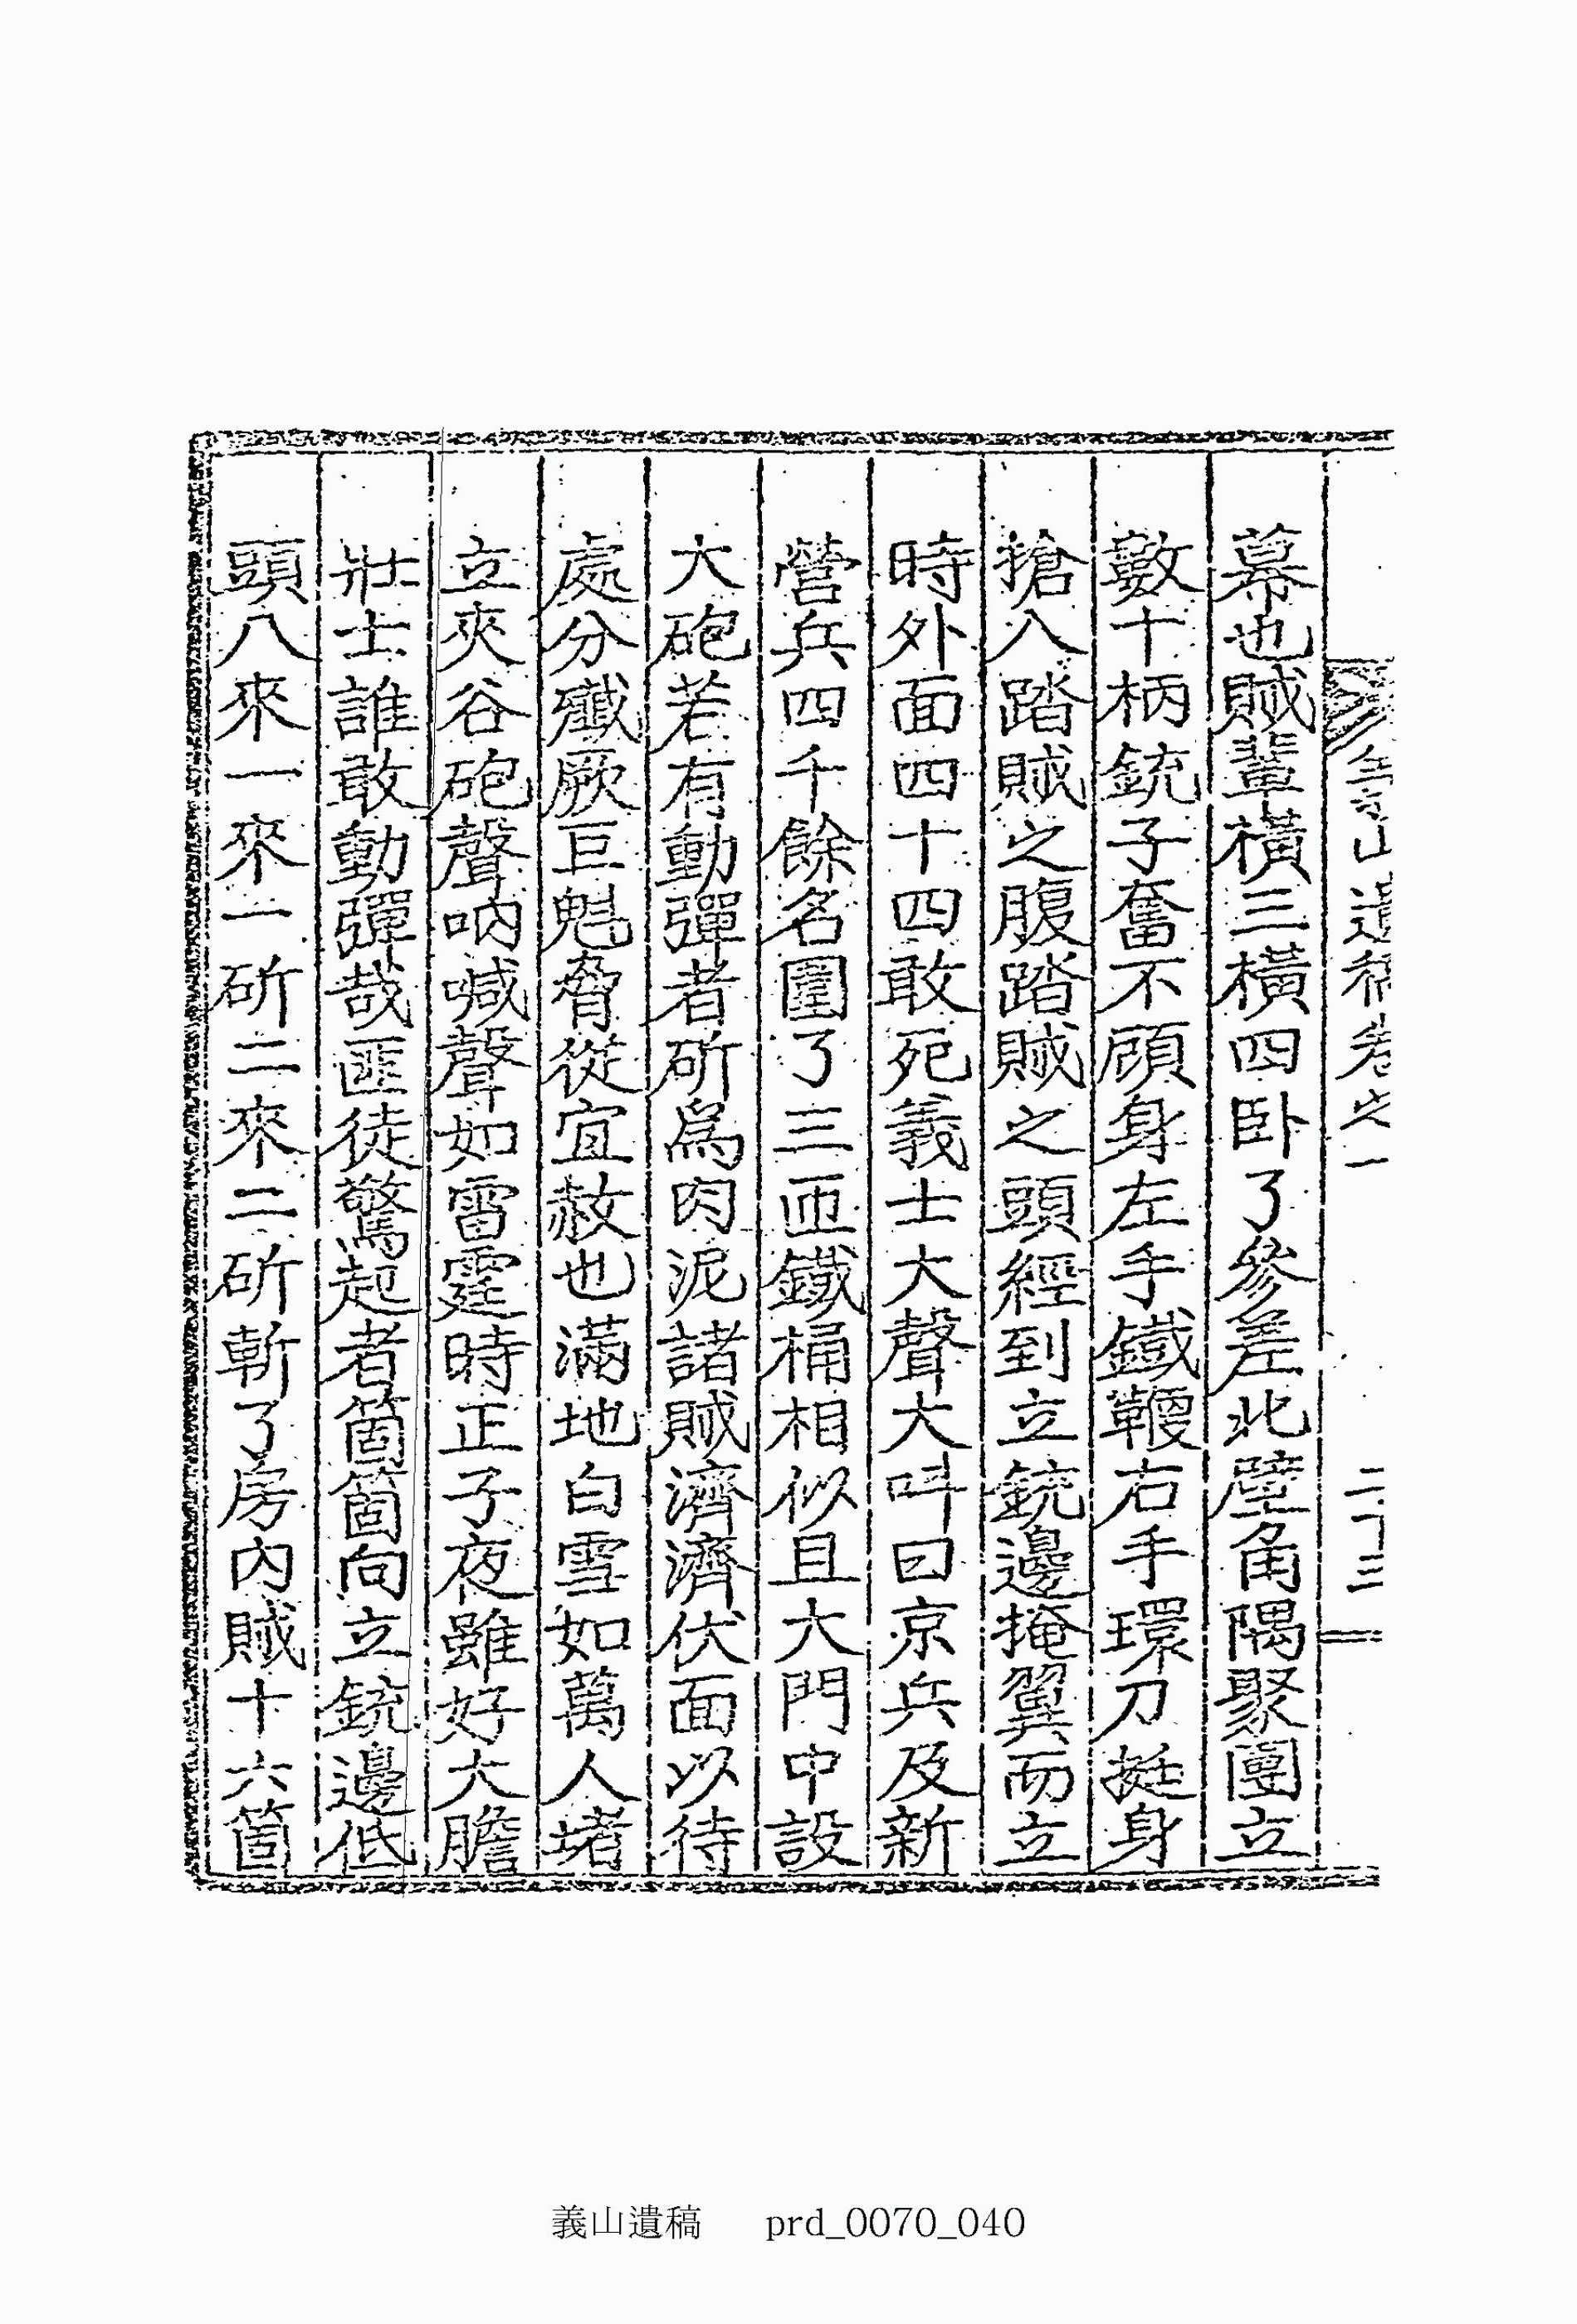 義山遺稿卷之一 二十三
幕也賊輩橫三橫四臥了參差北壁角隅聚團立
數十柄銃子奮不顧身左手鐵鞭右手環刀挺身
搶入踏賊之腹踏賊之頭經到立銃邊掩翼而立
時外面四十四敢死義士大聲大呌曰京兵及新
營兵四千餘名圍了三匝鐵桶相似且大門中設
大砲若有動彈者斫爲肉泥諸賊濟濟伏面以待
處分殲厥巨魁脅從宜赦也滿地白雪如萬人堵
立夾谷砲聲吶喊聲如雷霆時正子夜雖好大膽
壯士誰敢動彈哉匪徒驚起者箇箇向立銃邊低
頭八來一來一斫二來二斫斬了房內賊十六箇
義山遺稿 prd_0070_040